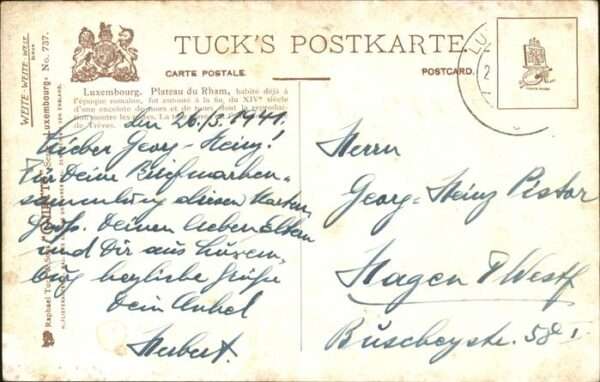 WEITE WEITE WELT
No. 737.
TUCK'S POSTKARTE.
CARTE POSTALE.
POSTCARD.
Luxembourg. Plateau du Rham, habité déjà à
l'époque romaine, fut entouré à la fin du XIVe siècle
d'une enceinte de murs et de tours dont la reproduc-
tion montre les
de Trèves.
den 26./3. 1941.
Lieber Georg-Heinz!
Für Deine Briefmarken-
sammlung diesen Karten
Gruß. Deinen lieben Eltern
und Dir aus Luxem-
burg herzliche Grüße
Dein Onkel
Herbert.
Herrn
Georg-Heinz Pistor
Hagen i/Westf
Büscheystr. 58 I.
Raphael Tuck
Luxembourg
LU